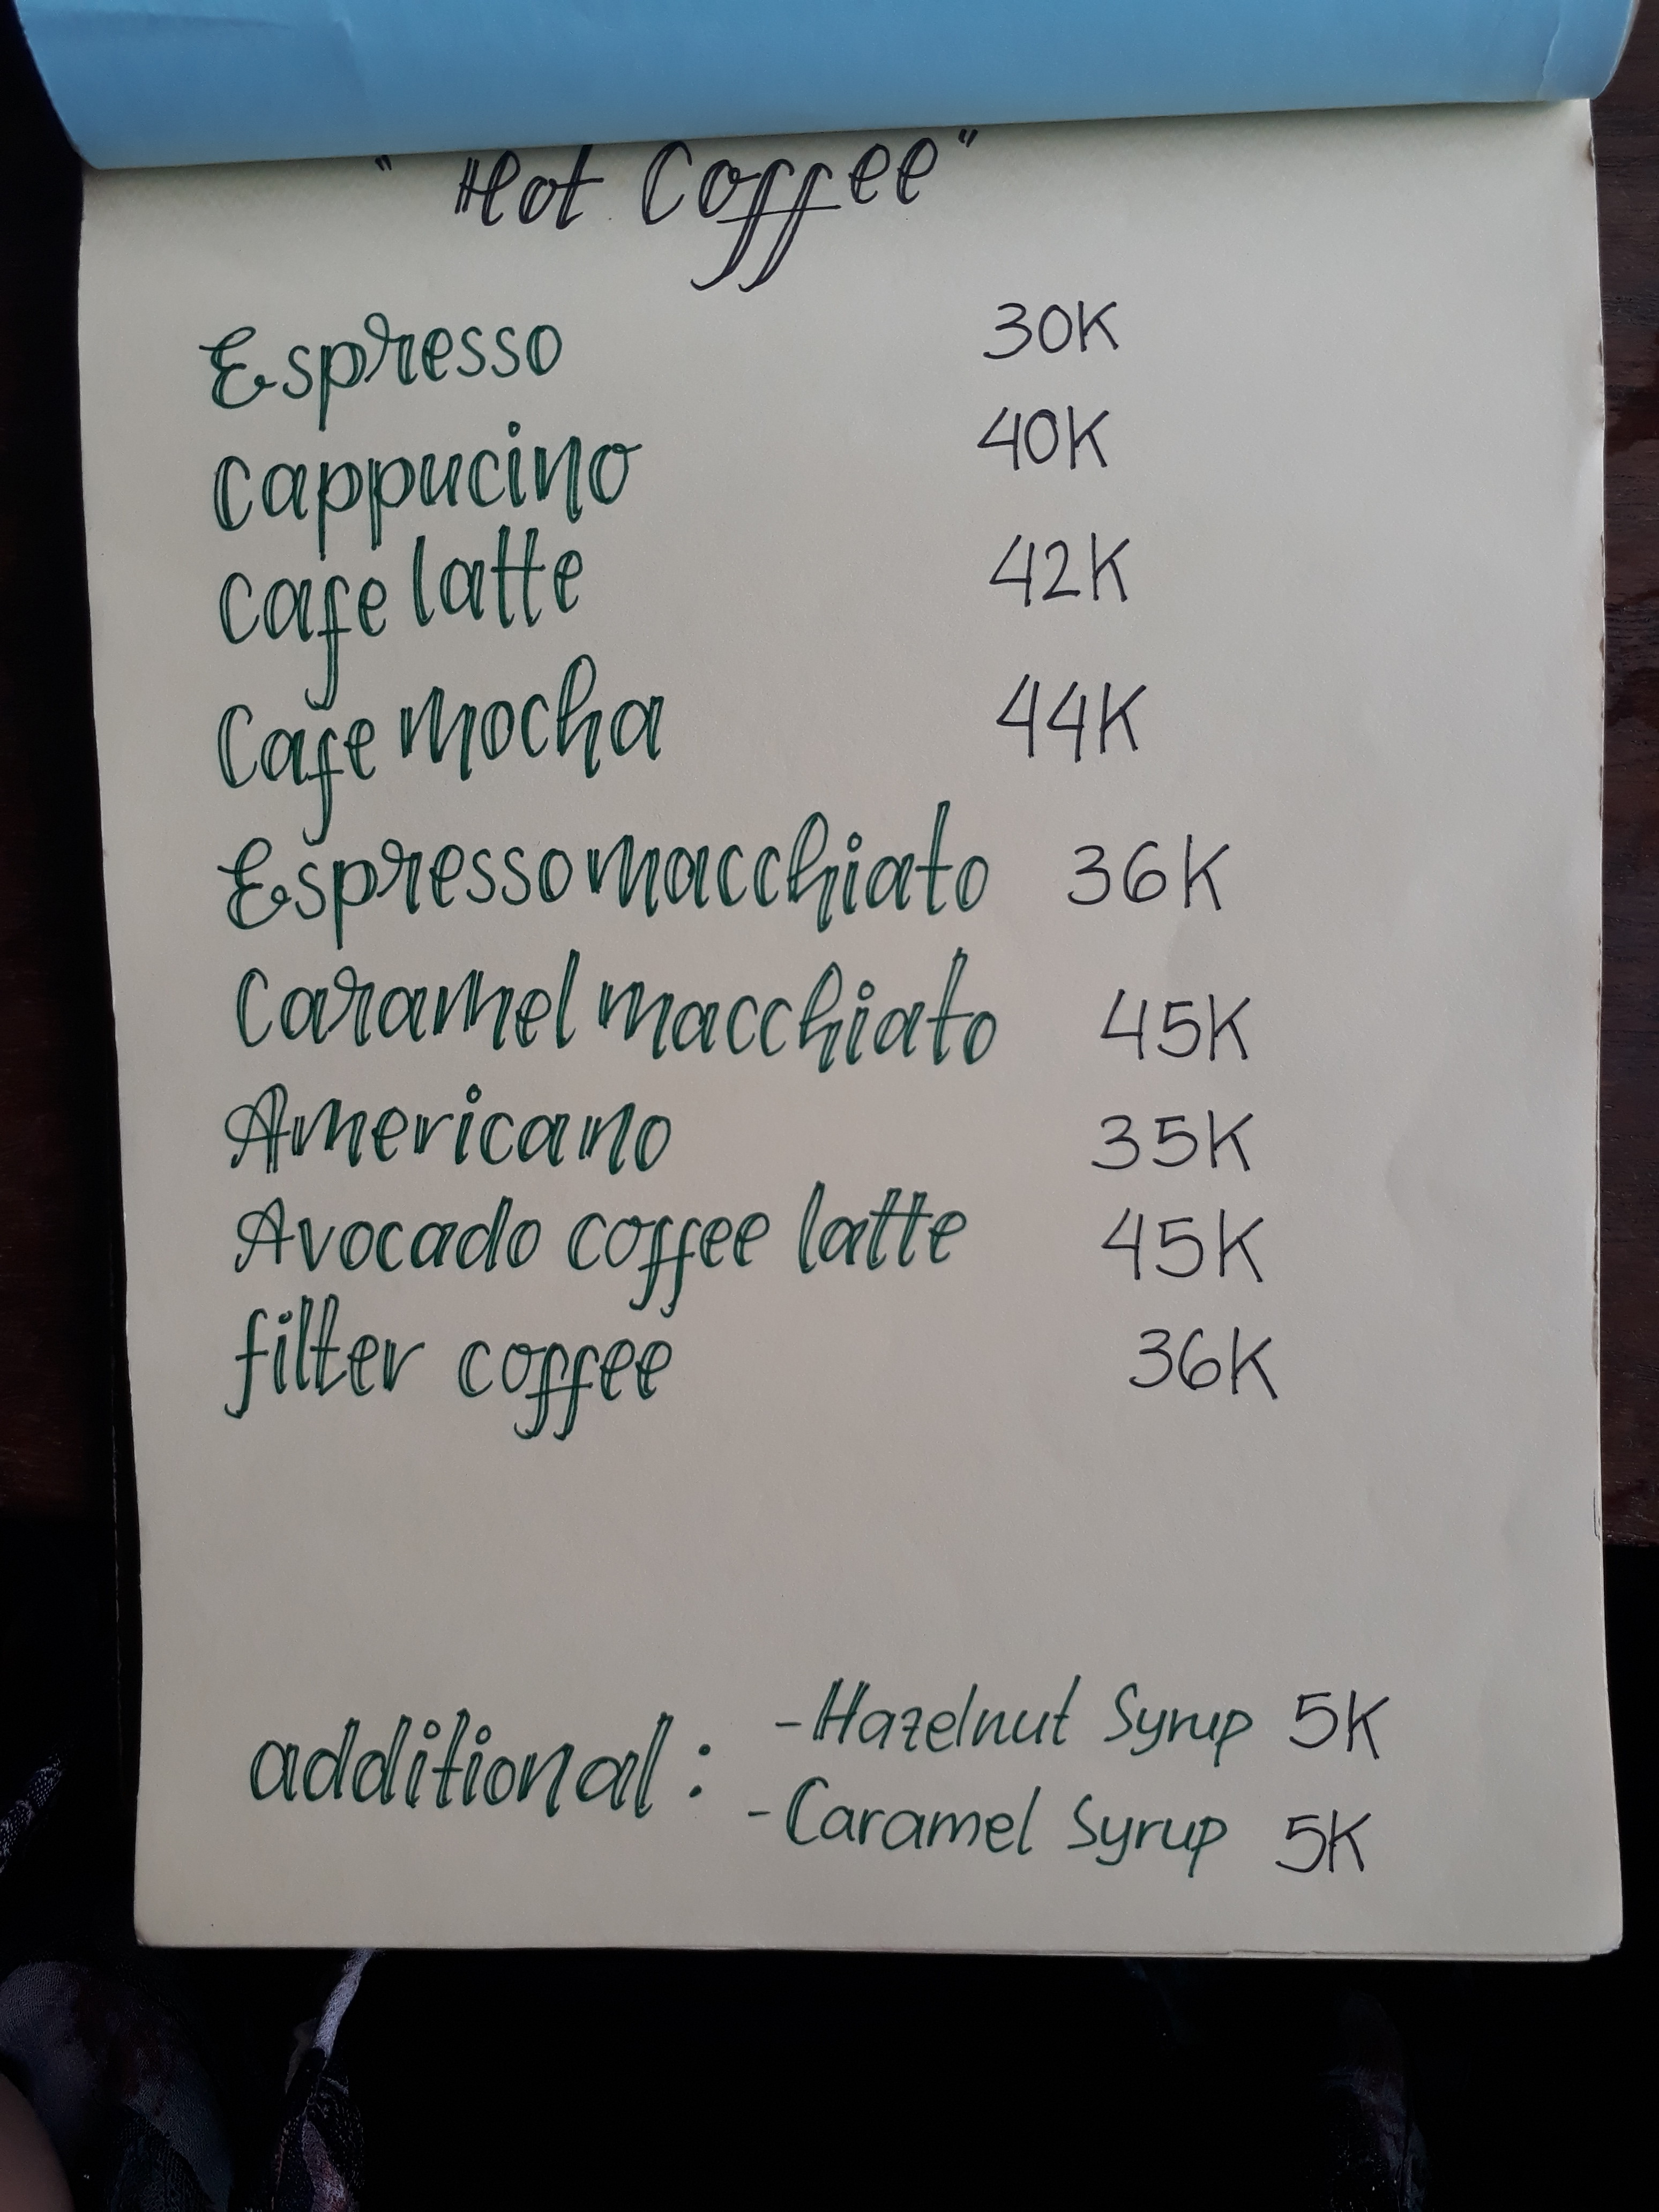 "Hot Coffee"
Espresso 30K
Cappucino 40K
Cafe latte 42K
Cafe mocha 44K
Espresso macchiato 36K
Caramel macchiato 45K
Americano 35K
Avocado coffee latte 45K
filter coffee 36K
additional : - Hazelnut Syrup 5K
- Caramel Syrup 5K